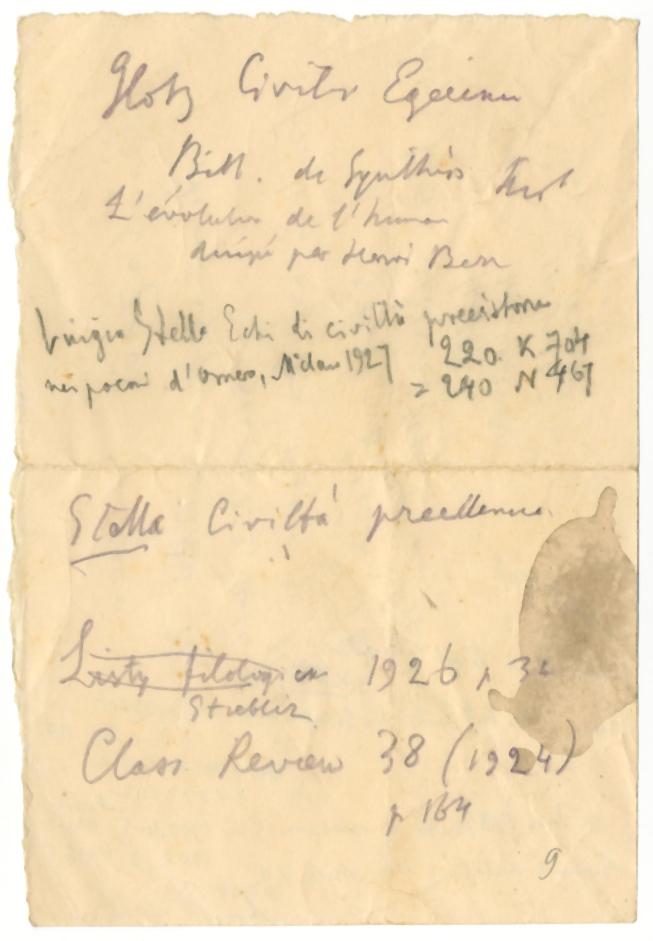 Glotz Civilis Egeenne
Bibl. de Synthèse hist
L'évolution de l'human
dirigé par Henri Berr
Luigia Stella Echi di civiltà preistoriche
nei poemi d'Omero, Milano 1927 220. K 704
= 240 N 467
Stella Civiltá preellenic.
Listy filologicke 1926 p 32
Stiebitz
Class. Review 38 (1924)
p 164
9